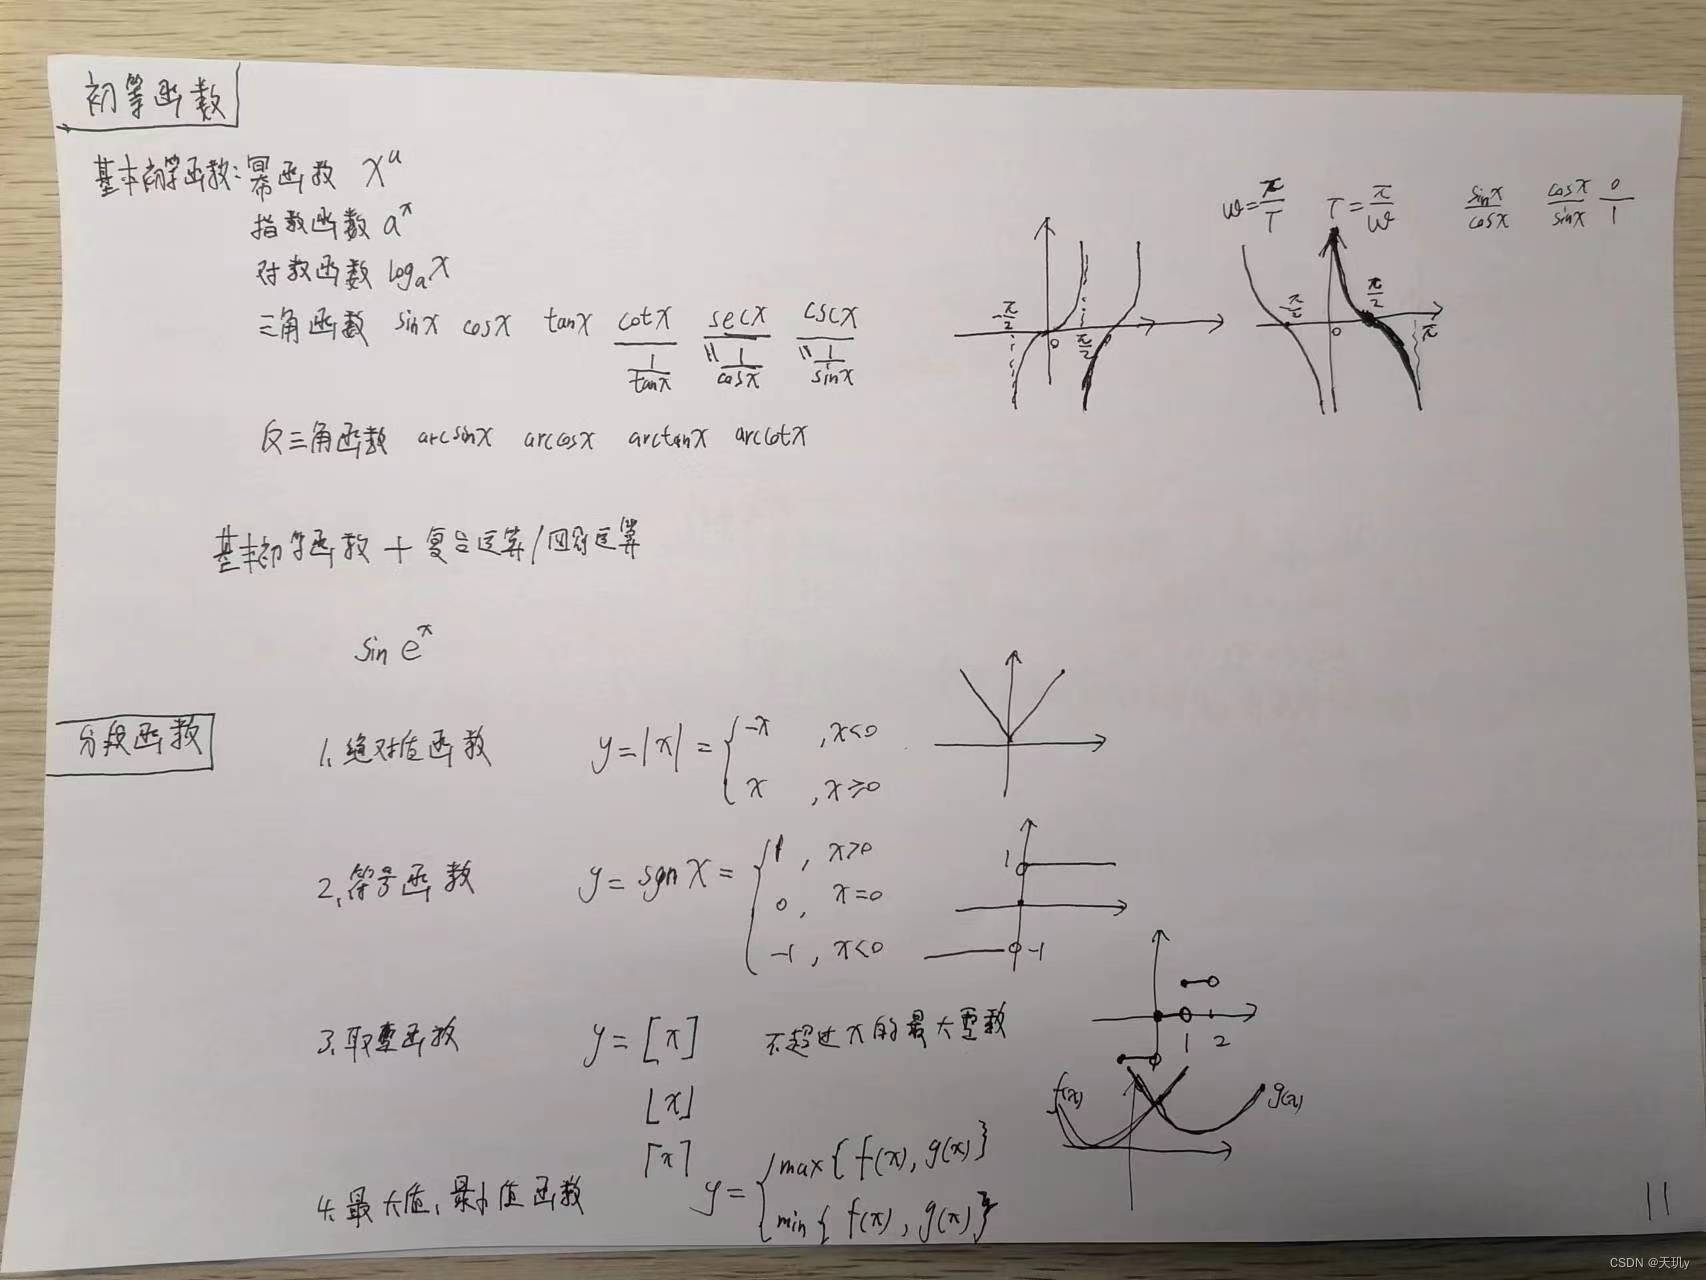 初等函数
基本初等函数：幂函数 x^a
指数函数 a^x
对数函数 log_a x
三角函数 sinx cosx tanx cotx secx cscx
1/tanx " 1/cosx " 1/sinx
反三角函数 arcsinx arccosx arctanx arccotx
ω=π/T T=π/ω sinx/cosx cosx/sinx 0/1
-π/2 0 π/2
-π/2 0 π/2 π
基本初等函数 + 复合运算/四则运算
sin e^x
分段函数
1. 绝对值函数 y=|x|={ -x ,x<0
x ,x≥0
2. 符号函数 y=sgnx={ 1 , x>0
0 , x=0
-1 , x<0
1
-1
3. 取整函数 y=[x] 不超过x的最大整数
⌊x⌋
⌈x⌉
1 2
f(x) g(x)
4. 最大值、最小值函数 y={ max{f(x),g(x)}
min{f(x),g(x)}
11
CSDN @天玑y